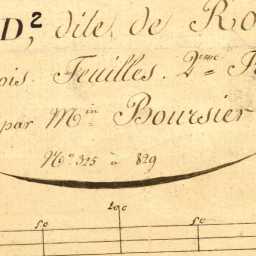 D², dite de Ro
ois Feuilles. 2ème F
par Min Boursier
Nos 325 à 829
200
50 50